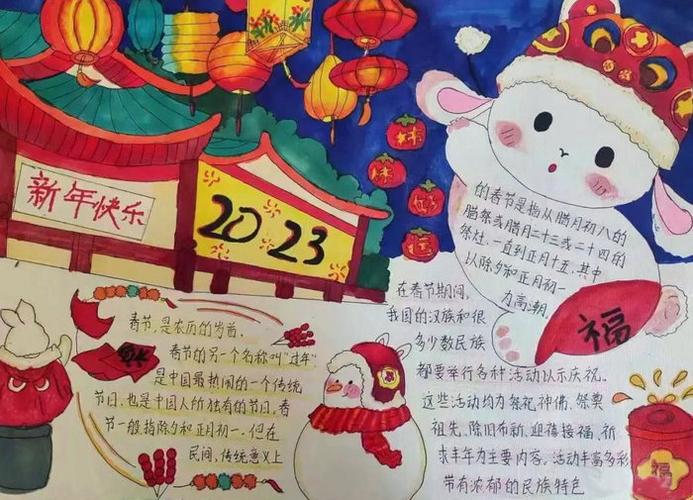 新年快乐
2023
春节，是农历的岁首，
春节的另一个名称叫“过年”
是中国最热闹的一个传统
节日，也是中国人所独有的节日。春
节一般指除夕和正月初一，但在
民间，传统意义上
的春节是指从腊月初八的
腊祭或腊月二十三或二十四的
祭灶，一直到正月十五，其中
以除夕和正月初一
为高潮。
福
在春节期间，
我国的汉族和很
多少数民族
都要举行各种活动以示庆祝。
这些活动均为祭祀神佛、祭奠
祖先、除旧布新、迎禧接福、祈
求丰年为主要内容。活动丰富多彩
带有浓郁的民族特色
福